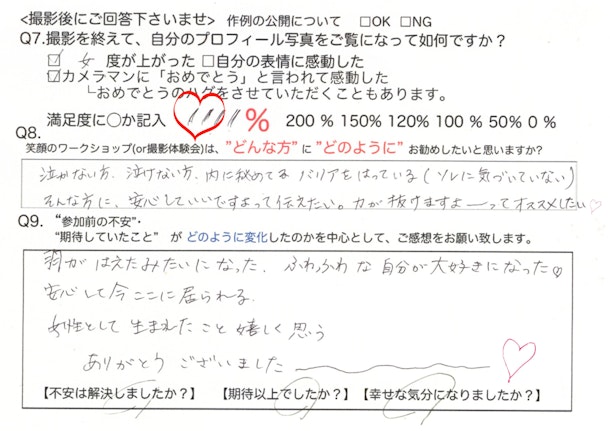 <撮影後にご回答下さいませ> 作例の公開について □OK □NG
Q7.撮影を終えて、自分のプロフィール写真をご覧になって如何ですか？
☑ 女 度が上がった □自分の表情に感動した
☑カメラマンに「おめでとう」と言われて感動した
└おめでとうのハグをさせていただくこともあります。
満足度に○か記入 % 200 % 150% 120% 100 % 50% 0 %
Q8.
笑顔のワークショップ(or撮影体験会)は、"どんな方" に "どのように" お勧めしたいと思いますか?
泣かない方、泣けない方、内に秘めてる バリアをはっている(ソレに気づいていない)
そんな方に、安心していいですよって伝えたい。力が抜けますよーってオススメしたい♡
Q9. "参加前の不安"・
"期待していたこと" が どのように変化したのかを中心として、ご感想をお願い致します。
羽が はえたみたいになった. ふわふわ な 自分が 大好きになった♡
安心して今ここに居られる.
女性として 生まれたこと 嬉しく 思う
ありがとう ございました ♡
【不安は解決しましたか？】 【期待以上でしたか？】 【幸せな気分になりましたか？】